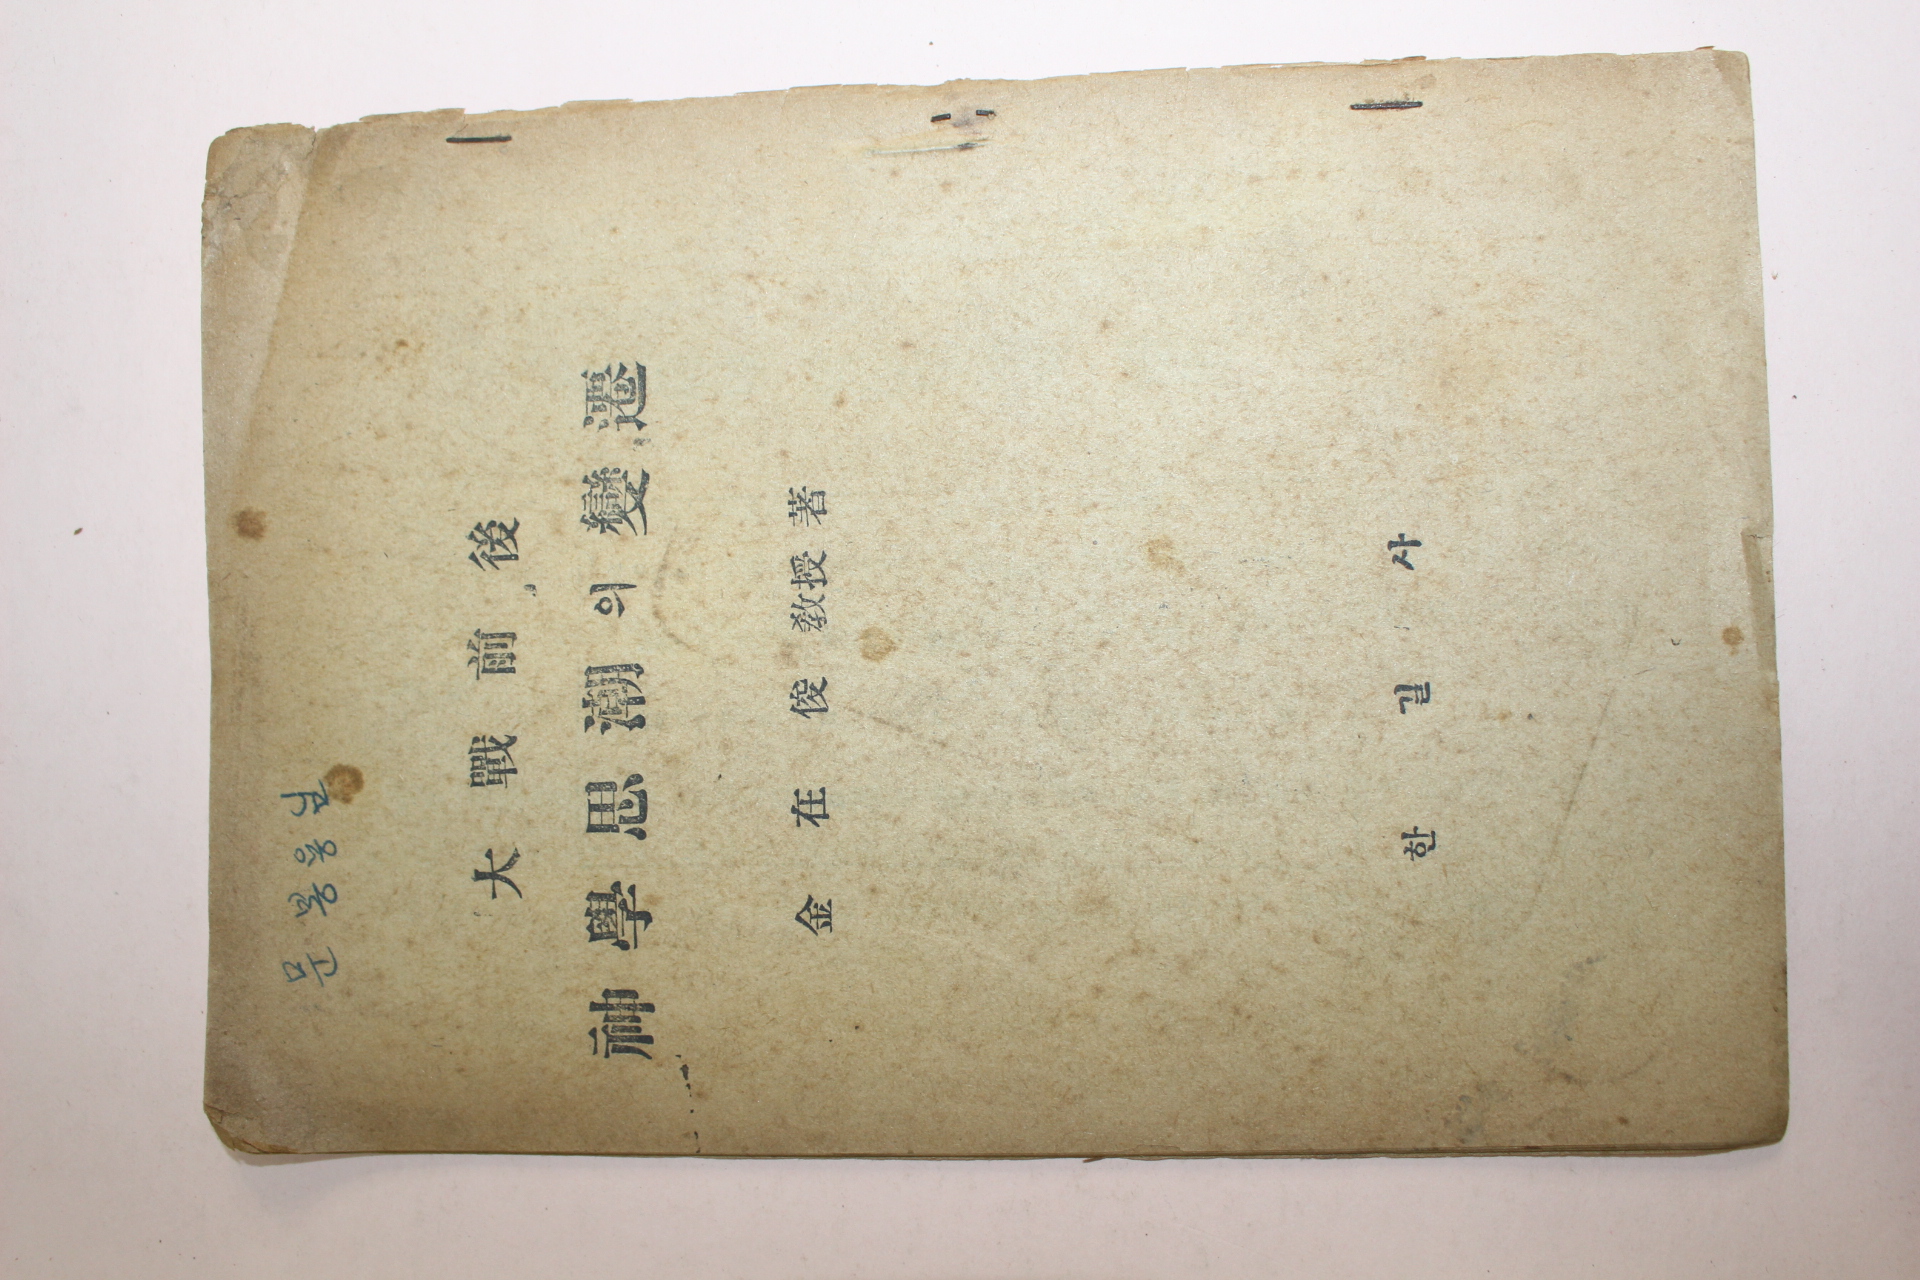 大戰前後
神學思潮의變遷
金在俊教授著
한길사